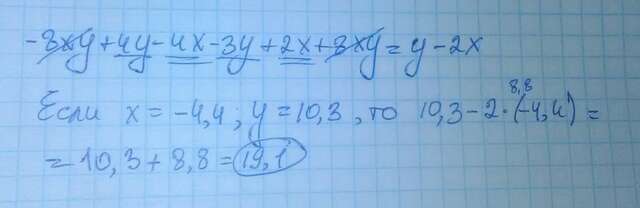 -8xy+4y-4x-3y+2x+8xy=y-2x
Если x=-4,4; y=10,3, то 10,3-2·(-4,4)=
8,8
=10,3+8,8=19,1